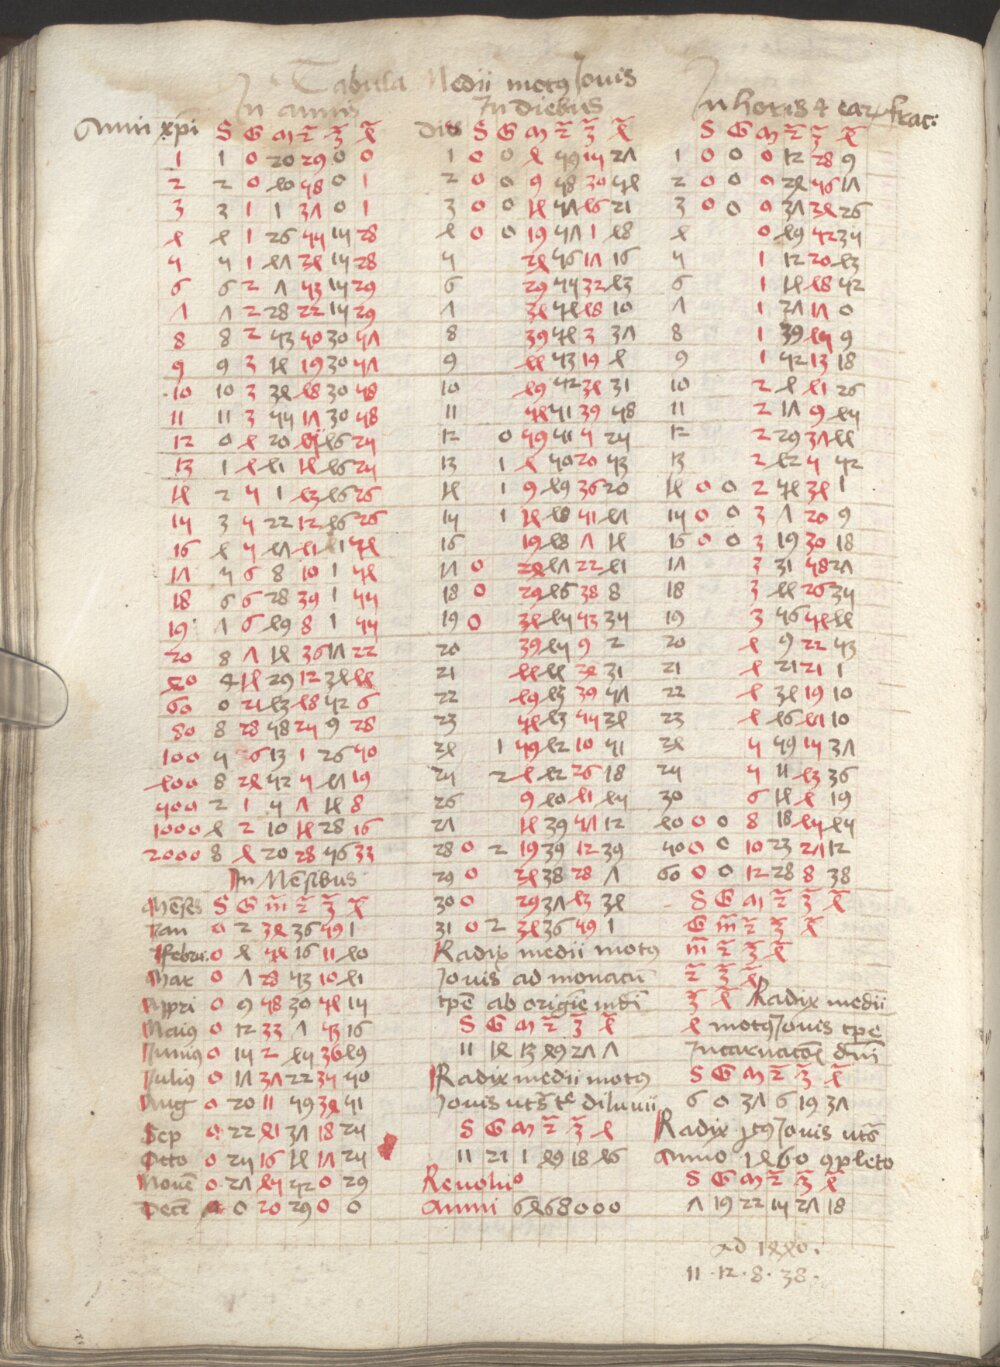 Tabula Medii motus Iouis
In annis
Anni xpi S G m 2 3 4
1 1 0 20 29 0 0
2 2 0 40 58 0 1
3 3 1 1 37 0 1
4 4 1 26 55 15 28
5 5 1 47 24 15 28
6 6 2 7 53 15 29
7 7 2 28 22 15 29
8 8 2 53 50 30 57
9 9 3 14 19 30 57
10 10 3 34 48 30 58
11 11 3 55 17 30 58
12 0 4 20 45 46 25
13 1 4 41 14 46 25
14 2 5 1 43 46 26
15 3 5 22 12 46 26
16 4 5 47 41 1 54
17 5 6 8 10 1 54
18 6 6 28 39 1 55
19 7 6 49 8 1 55
20 8 7 14 36 17 22
40 4 14 29 12 34 44
60 0 21 43 48 52 6
80 8 28 58 25 9 28
100 5 6 13 1 26 50
400 8 24 52 5 47 19
500 2 1 5 7 14 8
1000 4 2 10 14 28 16
2000 8 4 20 28 56 33
In Mēsibus
Mēses S G m 2 3 4
Ian 0 2 34 36 59 1
Febru. 0 4 54 16 11 40
Mar 0 7 28 53 10 41
Appri 0 9 58 30 54 15
Maius 0 12 33 7 53 16
Iunius 0 15 2 45 36 49
Iulius 0 17 37 22 35 50
Aug 0 20 11 59 34 51
Sep 0 22 41 37 18 25
Octo 0 25 16 14 17 25
Nouē 0 27 45 52 0 29
Decē 1 0 20 29 0 0
In diebus
Dies S G m 2 3 4
1 0 0 4 59 15 27
2 0 0 9 58 30 54
3 0 0 14 57 46 21
4 0 0 19 57 1 48
5 24 56 17 16
6 29 55 32 43
7 34 54 48 10
8 39 54 3 37
9 44 53 19 4
10 49 52 34 31
11 54 51 39 58
12 0 59 51 5 25
13 1 4 50 20 53
14 1 9 49 36 20
15 1 14 48 51 47
16 19 48 7 14
17 0 24 47 22 41
18 0 29 46 38 8
19 0 34 45 53 35
20 39 45 9 2
21 44 44 24 31
22 49 43 39 57
23 54 43 55 34
24 1 59 42 10 51
25 2 4 42 26 18
26 9 40 41 45
27 14 39 57 12
28 0 2 19 39 12 39
29 0 24 38 28 7
30 0 29 37 43 34
31 0 2 34 36 59 1
Radix medii motus
Iouis ad monacū
tpē ab origīe mūdi
S G m 2 3 4
11 14 13 49 27 7
Radix medii motus
Iouis diluuii
S G m 2 3 4
11 21 1 49 18 46
Reuolutio
Anni 6468000
In horis & earū frac:
S G m 2 3 4
1 0 0 0 12 28 9
2 0 0 0 24 56 17
3 0 0 0 37 24 26
4 0 49 52 35
5 1 12 20 43
6 1 14 48 52
7 1 27 17 0
8 1 39 45 9
9 1 52 13 18
10 2 4 41 26
11 2 17 9 45
12 2 29 37 44
13 2 42 5 52
14 0 0 2 54 34 1
15 0 0 3 7 20 9
16 0 0 3 19 30 18
17 3 31 58 27
18 3 44 26 35
19 3 56 54 44
20 4 9 22 53
21 4 21 21 1
22 4 34 19 10
23 4 46 47 10
24 5 59 15 37
25 5 11 43 36
30 6 14 4 19
40 0 0 8 18 45 45
50 0 0 10 23 27 12
60 0 0 12 28 8 38
S G m 2 3 4
G m 2 3 4
m 2 3 4
2 3 4
3 4 Radix medii
4 motus Iouis tpē
Incarnacōī dnī
S G m 2 3 4
6 0 37 6 19 37
Radix Iouis
Anno 1460 9pleto
S G m 2 3 4
7 19 22 15 27 18
Ad 1440.
11 · 12 · 8 · 38 ·